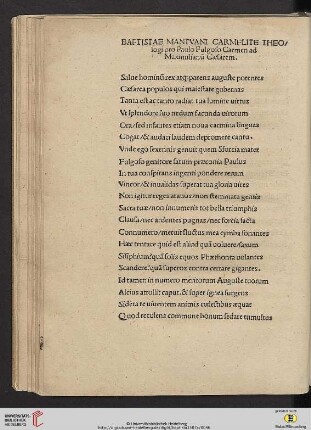 BAPTISTAE MANTVANI CARMELITE THEO/
logi pro Paulo Fulgoso Carmen ad
Maximilianū Caesarem.
Salue hominū rex atq; parens auguste potentes
Caesarea populos qui maiestate gubernas
Tanta est ac tanto radiat tua lumine uirtus
Vt splendore suo nedum facunda uirorum
Ora, sed infantes etiam noua carmina lingua
Cogat, & audaci laudem depromere cantu.
Vnde ego
genuit quem Sforcia mater
Fulgoso genitore satum praeconia Paulus
In tua conspirans ingenti pondere rerum
Vincor, & inualidas superat tua gloria uires
Non igitur reges atauos, non stemmata gentis
Sacra tuae, non innumeris tot bella triumphis
Clausa, nec ardentes pugnas, nec fortia facta
Connumero, metuit fluctus mea cymba sonantes
Haec tentare quid est aliud quā uoluere saxum
Sisiphium, quā solis equos Phaethonta uolantes
Scandere, quā superos contra certare gigantes.
Id tamen in numero meritorum Auguste tuorum
Alcius attollit caput, & super ignea surgens
Sidera te uiuentem animis caelestibus aequat
Quod recolens commune bonum sedare tumultus
UNIVERSITÄTS-
BIBLIOTHEK
HEIDELBERG
© Universitätsbibliothek Heidelberg